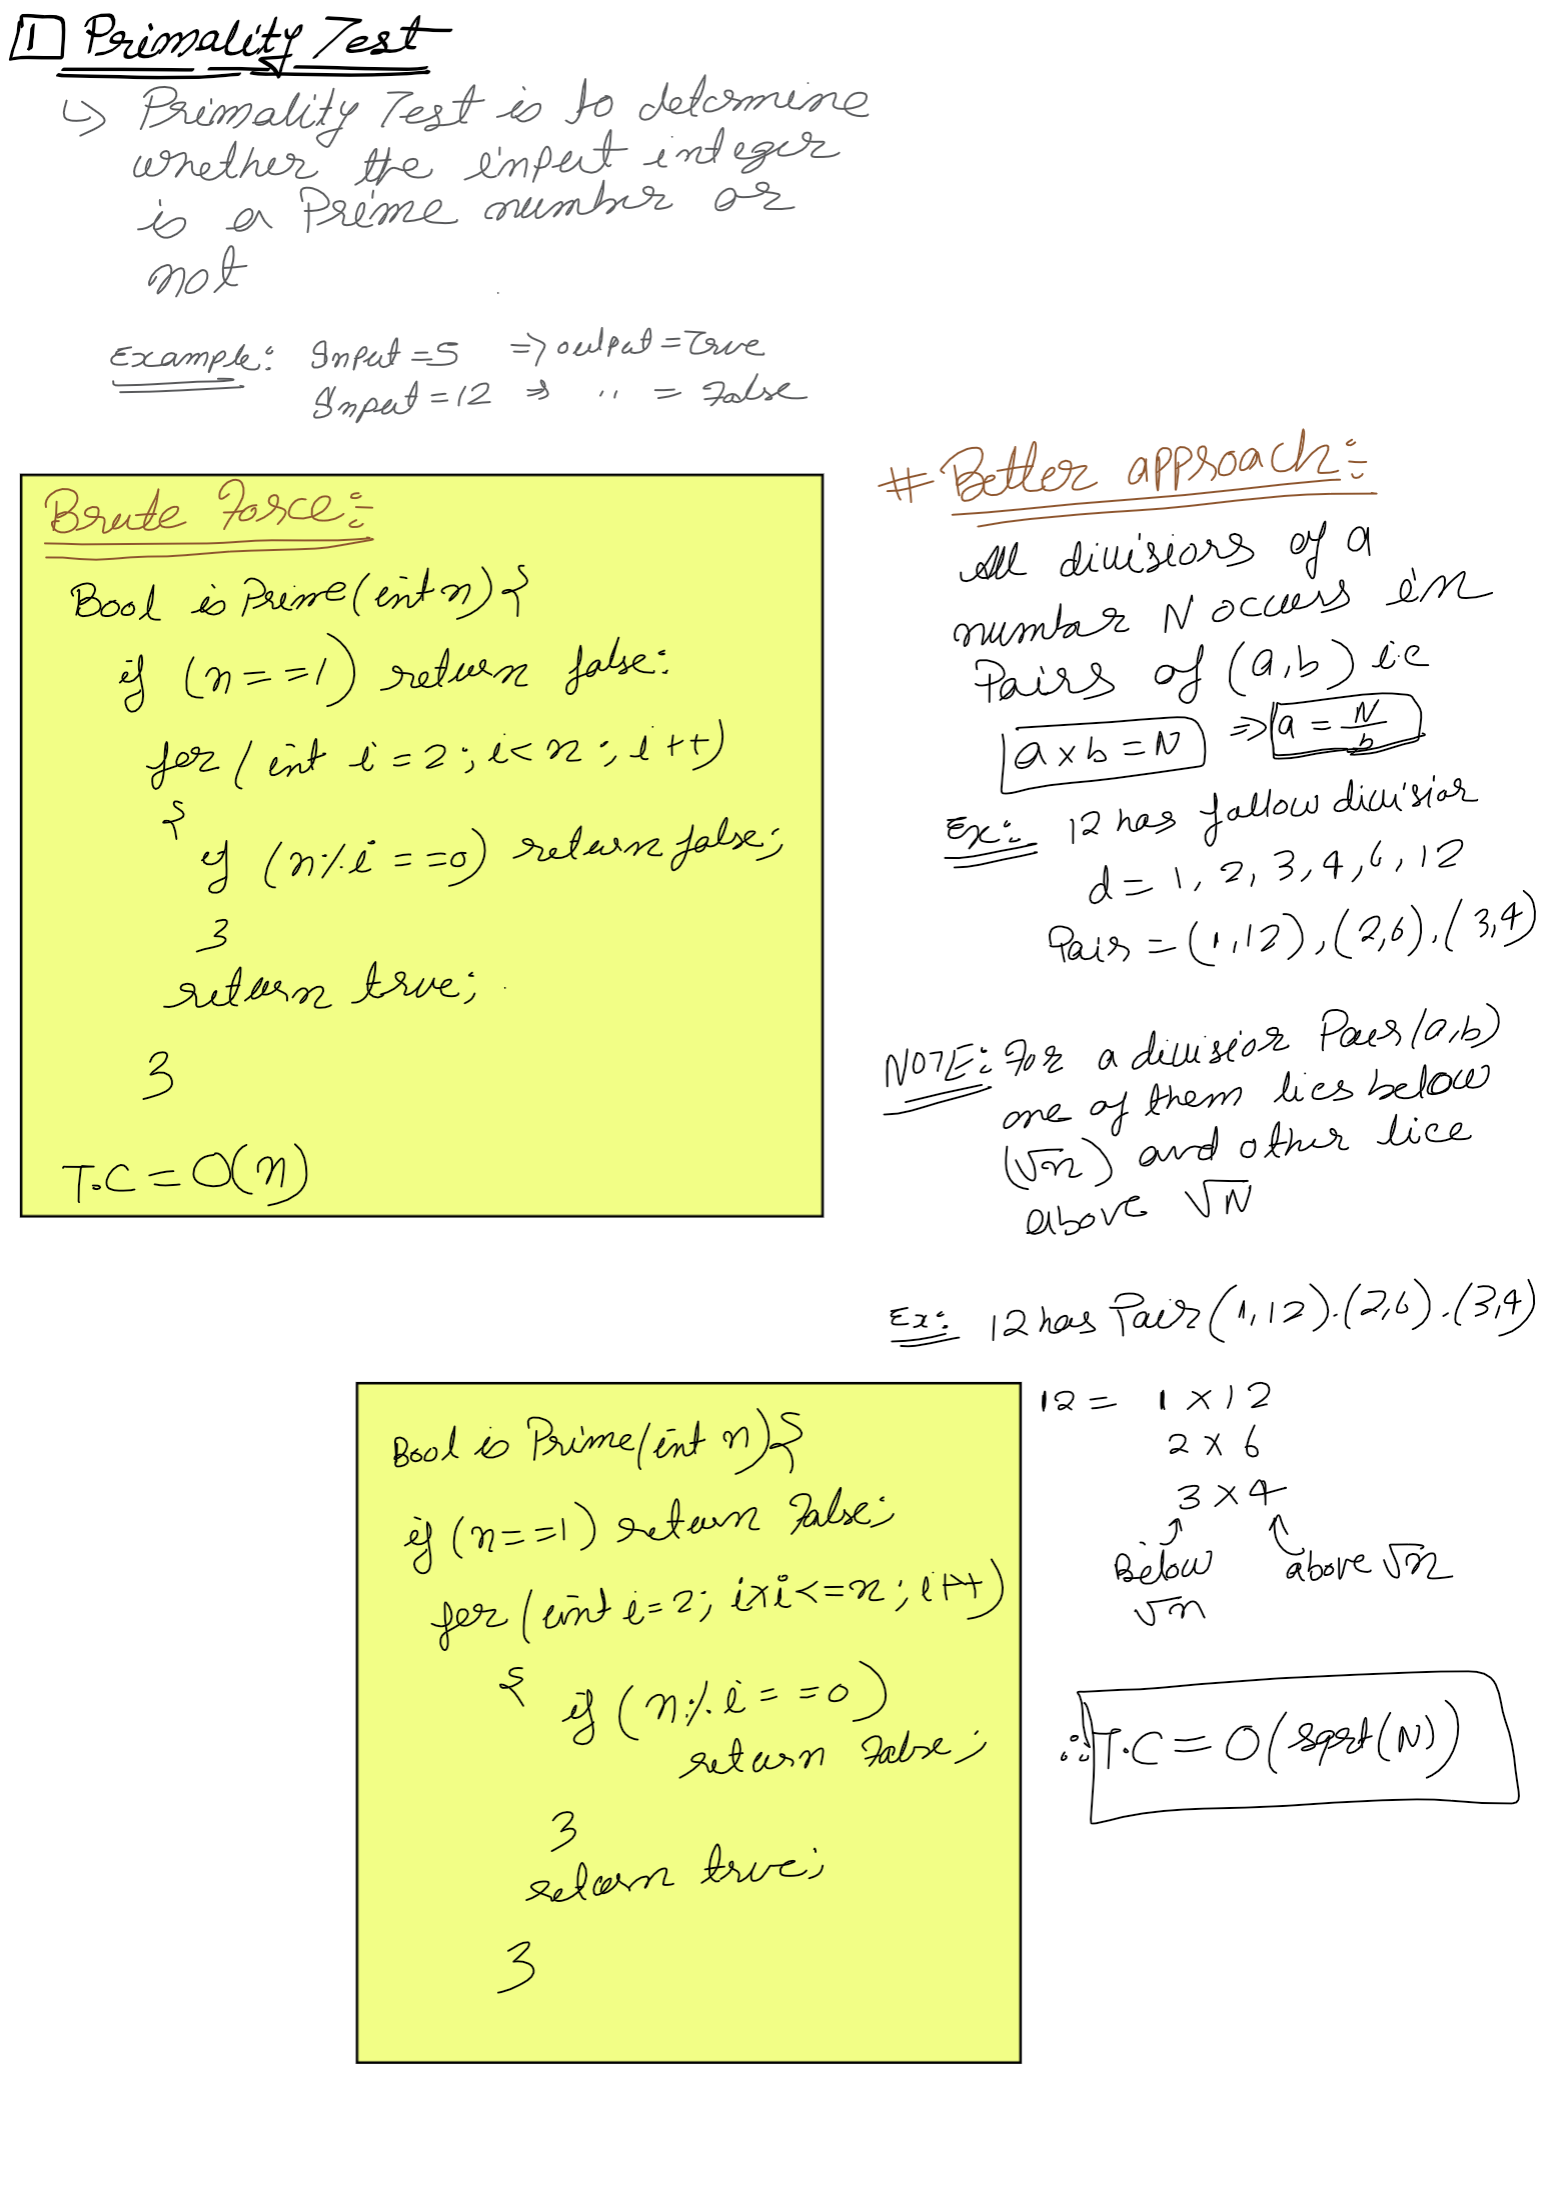 1 Primality Test
↳ Primality Test is to determine
whether the input integer
is a Prime number or
not
Example: Input = 5 => output = True
Input = 12 => '' = False
Brute Force:
Bool isPrime(int n) {
if (n==1) return false:
for (int i = 2; i < n; i++)
{
if (n % i == 0) return false;
}
return true;
}
T.C = O(n)
# Better approach:
All divisiors of a
number N occurs in
Pairs of (a,b) ie
a x b = N => a = N/b
Ex: 12 has fallow divisior
d = 1, 2, 3, 4, 6, 12
Pair = (1,12), (2,6), (3,4)
NOTE: For a divisior Pair (a,b)
one of them lies below
(√n) and other lice
above √N
Ex: 12 has Pair (1,12).(2,6).(3,4)
12 = 1 x 12
2 x 6
3 x 4
Below above √n
√n
∴ T.C = O(sqrt(N))
Bool isPrime(int n) {
if (n==1) return False;
for (int i = 2; i x i <= n; i++)
{ if (n % i == 0)
return False;
}
return true;
}